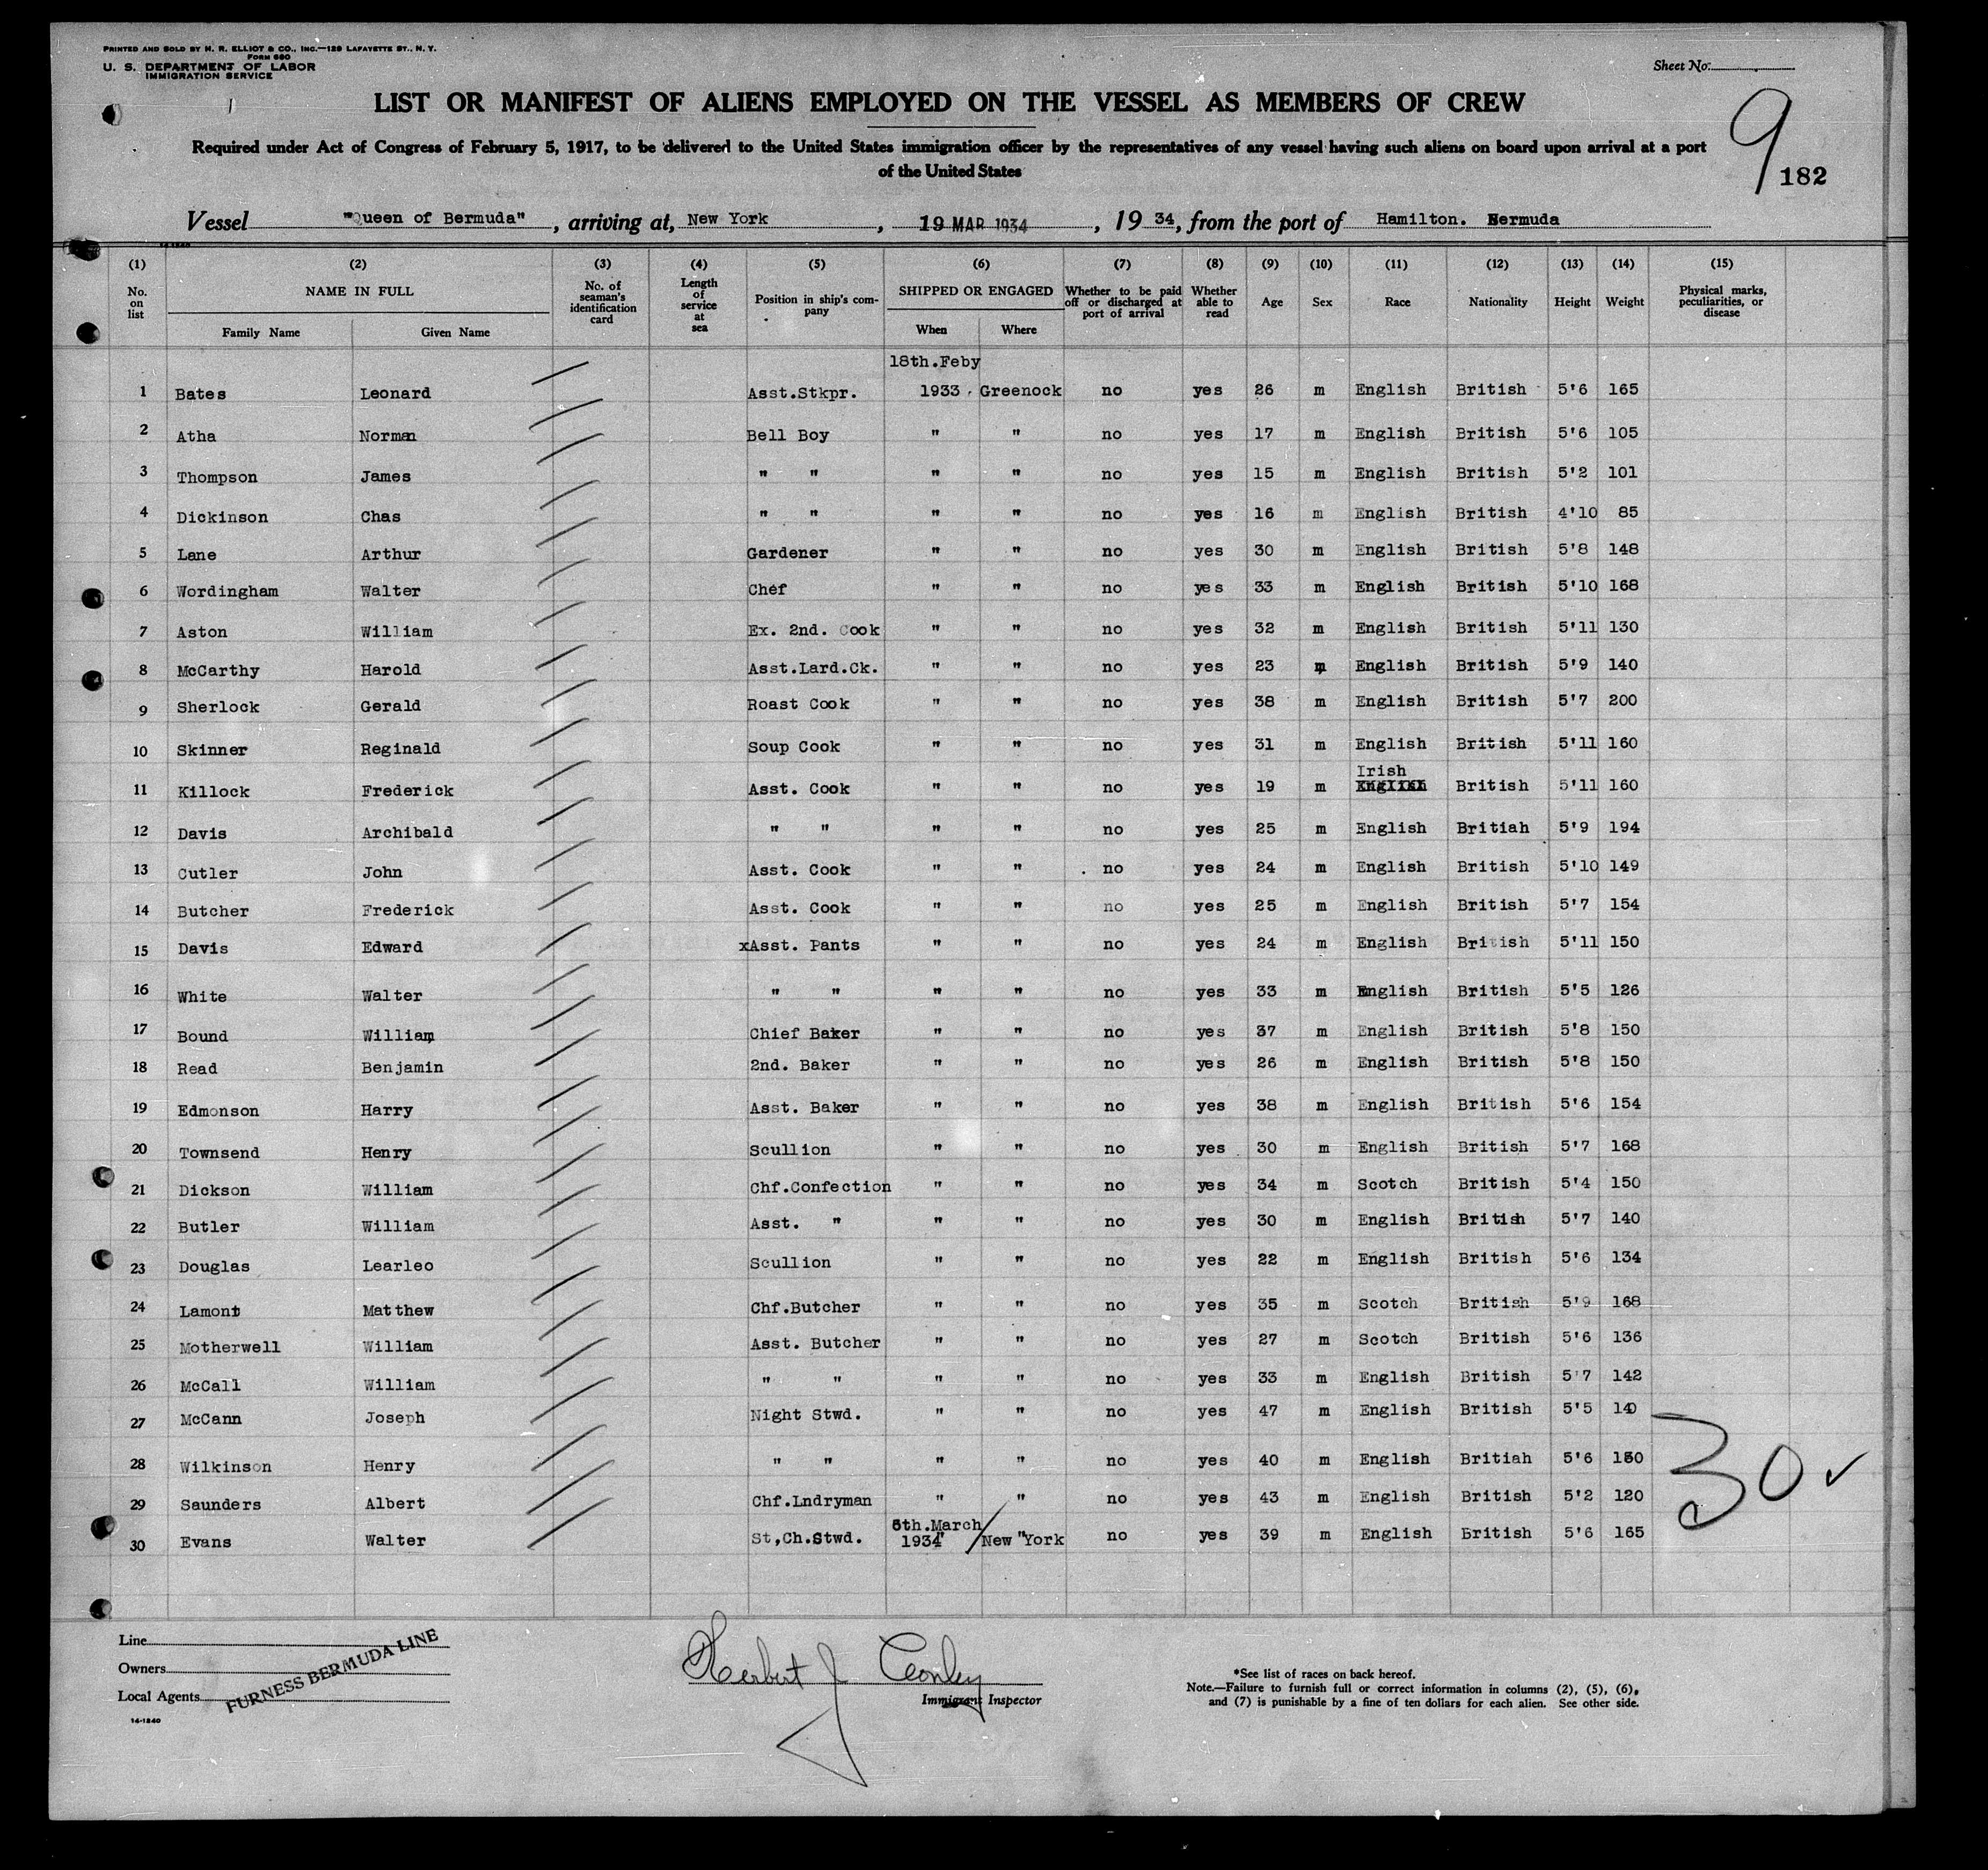 PRINTED AND SOLD BY H. R. ELLIOT & CO., INC.—129 LAFAYETTE ST., N. Y.
FORM 680
U. S. DEPARTMENT OF LABOR
IMMIGRATION SERVICE
Sheet No.
LIST OR MANIFEST OF ALIENS EMPLOYED ON THE VESSEL AS MEMBERS OF CREW
9
Required under Act of Congress of February 5, 1917, to be delivered to the United States immigration officer by the representatives of any vessel having such aliens on board upon arrival at a port
of the United States
182
Vessel "Queen of Bermuda", arriving at, New York, 19 MAR 1934, 19 34, from the port of Hamilton. Bermuda
(1) (2) (3) (4) (5) (6) (7) (8) (9) (10) (11) (12) (13) (14) (15)
No. on list NAME IN FULL Family Name Given Name No. of seaman's identification card Length of service at sea Position in ship's company SHIPPED OR ENGAGED When Where Whether to be paid off or discharged at port of arrival Whether able to read Age Sex Race Nationality Height Weight Physical marks, peculiarities, or disease
18th.Feby
1 Bates Leonard Asst.Stkpr. 1933 Greenock no yes 26 m English British 5'6 165
2 Atha Norman Bell Boy " " no yes 17 m English British 5'6 105
3 Thompson James " " " " no yes 15 m English British 5'2 101
4 Dickinson Chas " " " " no yes 16 m English British 4'10 85
5 Lane Arthur Gardener " " no yes 30 m English British 5'8 148
6 Wordingham Walter Chef " " no yes 33 m English British 5'10 168
7 Aston William Ex. 2nd. Cook " " no yes 32 m English British 5'11 130
8 McCarthy Harold Asst.Lard.Ck. " " no yes 23 m English British 5'9 140
9 Sherlock Gerald Roast Cook " " no yes 38 m English British 5'7 200
10 Skinner Reginald Soup Cook " " no yes 31 m English British 5'11 160
Irish
11 Killock Frederick Asst. Cook " " no yes 19 m English British 5'11 160
12 Davis Archibald " " " " no yes 25 m English Britiah 5'9 194
13 Cutler John Asst. Cook " " no yes 24 m English British 5'10 149
14 Butcher Frederick Asst. Cook " " no yes 25 m English British 5'7 154
15 Davis Edward xAsst. Pants " " no yes 24 m English British 5'11 150
16 White Walter " " " " no yes 33 m English British 5'5 126
17 Bound William Chief Baker " " no yes 37 m English British 5'8 150
18 Read Benjamin 2nd. Baker " " no yes 26 m English British 5'8 150
19 Edmonson Harry Asst. Baker " " no yes 38 m English British 5'6 154
20 Townsend Henry Scullion " " no yes 30 m English British 5'7 168
21 Dickson William Chf.Confection " " no yes 34 m Scotch British 5'4 150
22 Butler William Asst. " " " no yes 30 m English British 5'7 140
23 Douglas Learleo Scullion " " no yes 22 m English British 5'6 134
24 Lamont Matthew Chf.Butcher " " no yes 35 m Scotch British 5'9 168
25 Motherwell William Asst. Butcher " " no yes 27 m Scotch British 5'6 136
26 McCall William " " " " no yes 33 m English British 5'7 142
27 McCann Joseph Night Stwd. " " no yes 47 m English British 5'5 140
28 Wilkinson Henry " " " " no yes 40 m English Britiah 5'6 150
29 Saunders Albert Chf.Lndryman " " no yes 43 m English British 5'2 120
30 ✓
8th.March
30 Evans Walter St,Ch.Stwd. 1934" New "York no yes 39 m English British 5'6 165
Line
Owners
Local Agents
FURNESS BERMUDA LINE
14-1240
Herbert J Conley
Immigrant Inspector
*See list of races on back hereof.
Note.—Failure to furnish full or correct information in columns (2), (5), (6),
and (7) is punishable by a fine of ten dollars for each alien. See other side.